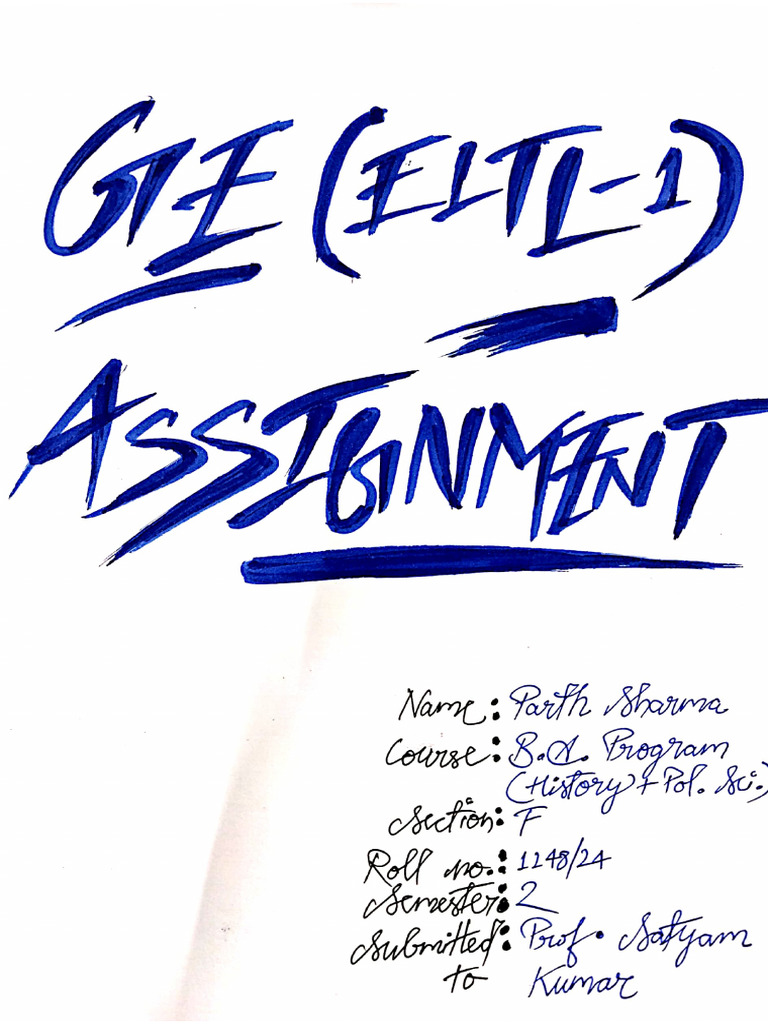 GE (ELTL-1)
ASSIGNMENT
Name: Parth Sharma
Course: B.A. Program
(History + Pol. Sci.)
Section: F
Roll no.: 1148/24
Semester: 2
Submitted: Prof. Satyam
to Kumar